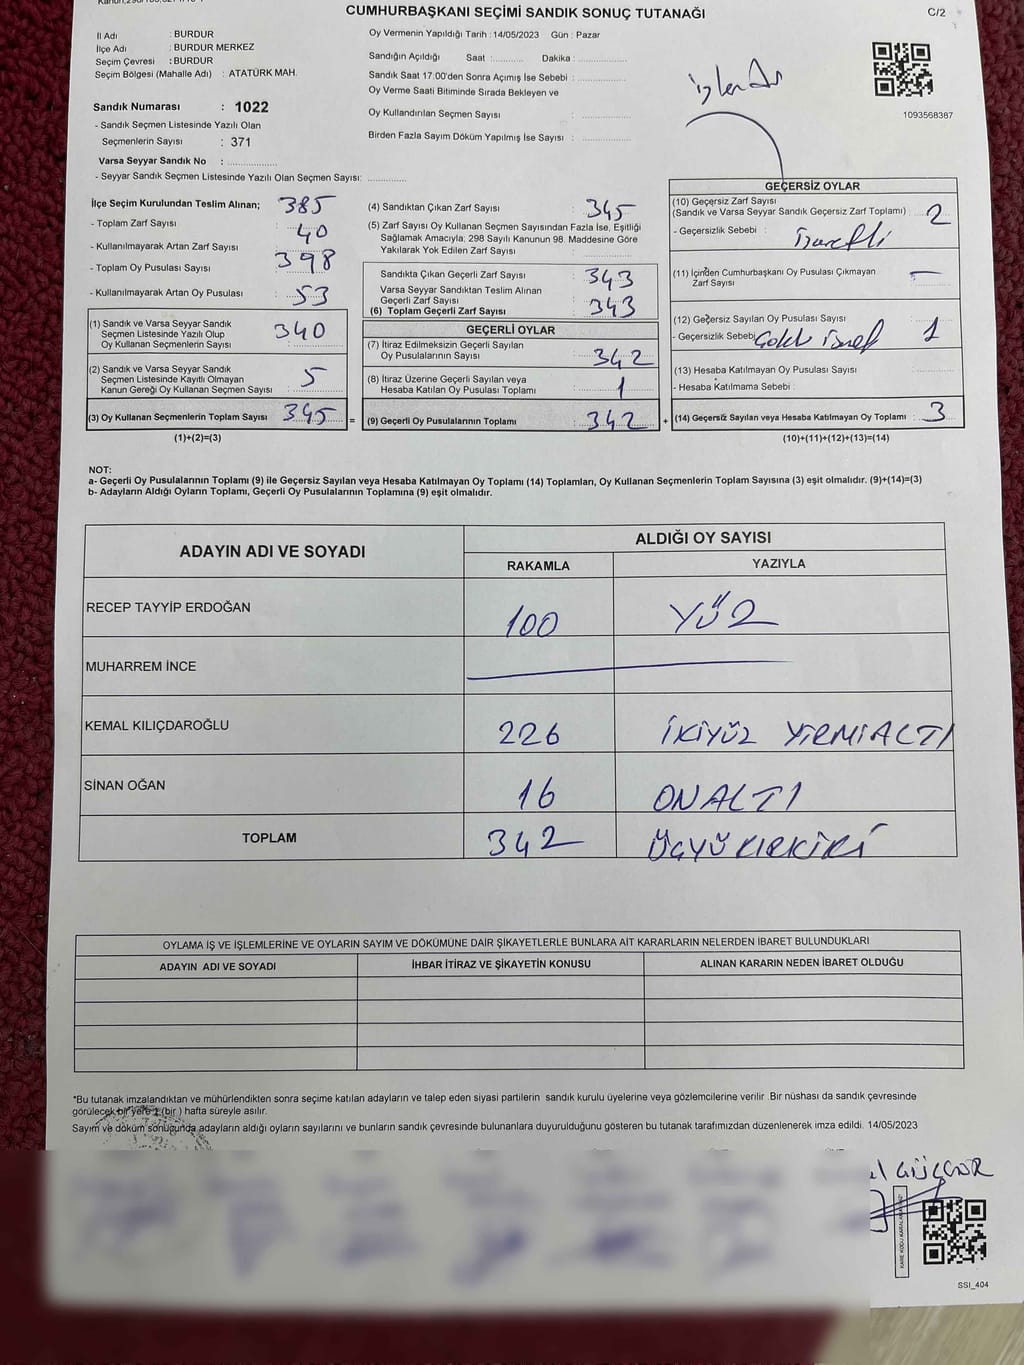 CUMHURBAŞKANI SEÇİMİ SANDIK SONUÇ TUTANAĞI
C/2
İl Adı : BURDUR
İlçe Adı : BURDUR MERKEZ
Seçim Çevresi : BURDUR
Seçim Bölgesi (Mahalle Adı) : ATATÜRK MAH.
Sandık Numarası : 1022
- Sandık Seçmen Listesinde Yazılı Olan
Seçmenlerin Sayısı : 371
Varsa Seyyar Sandık No : ..............
- Seyyar Sandık Seçmen Listesinde Yazılı Olan Seçmen Sayısı: ............
Oy Vermenin Yapıldığı Tarih : 14/05/2023 Gün : Pazar
Sandığın Açıldığı Saat :.......... Dakika :...............
Sandık Saat 17:00'den Sonra Açımış İse Sebebi : ...............
Oy Verme Saati Bitiminde Sırada Bekleyen ve
Oy Kullandırılan Seçmen Sayısı : ...............
Birden Fazla Sayım Döküm Yapılmış İse Sayısı : ...............
işlendi
1093568387
İlçe Seçim Kurulundan Teslim Alınan; 385
- Toplam Zarf Sayısı : 40
- Kullanılmayarak Artan Zarf Sayısı : 398
- Toplam Oy Pusulası Sayısı :
- Kullanılmayarak Artan Oy Pusulası : 53
(1) Sandık ve Varsa Seyyar Sandık
Seçmen Listesinde Yazılı Olup
Oy Kullanan Seçmenlerin Sayısı : 340
(2) Sandık ve Varsa Seyyar Sandık
Seçmen Listesinde Kayıtlı Olmayan
Kanun Gereği Oy Kullanan Seçmen Sayısı : 5
(3) Oy Kullanan Seçmenlerin Toplam Sayısı : 345 =
(1)+(2)=(3)
(4) Sandıktan Çıkan Zarf Sayısı : 345
(5) Zarf Sayısı Oy Kullanan Seçmen Sayısından Fazla İse, Eşitliği
Sağlamak Amacıyla; 298 Sayılı Kanunun 98. Maddesine Göre
Yakılarak Yok Edilen Zarf Sayısı : ...............
Sandıkta Çıkan Geçerli Zarf Sayısı : 343
Varsa Seyyar Sandıktan Teslim Alınan
Geçerli Zarf Sayısı :
(6) Toplam Geçerli Zarf Sayısı : 343
GEÇERLİ OYLAR
(7) İtiraz Edilmeksizin Geçerli Sayılan
Oy Pusulalarının Sayısı : 342
(8) İtiraz Üzerine Geçerli Sayılan veya
Hesaba Katılan Oy Pusulası Toplamı : 1
(9) Geçerli Oy Pusulalarının Toplamı : 342 +
GEÇERSİZ OYLAR
(10) Geçersiz Zarf Sayısı
(Sandık ve Varsa Seyyar Sandık Geçersiz Zarf Toplamı) : 2
- Geçersizlik Sebebi : İsaretli
(11) İçinden Cumhurbaşkanı Oy Pusulası Çıkmayan
Zarf Sayısı : —
(12) Geçersiz Sayılan Oy Pusulası Sayısı : 1
- Geçersizlik Sebebi
(13) Hesaba Katılmayan Oy Pusulası Sayısı :
- Hesaba Katılmama Sebebi :
(14) Geçersiz Sayılan veya Hesaba Katılmayan Oy Toplamı : 3
(10)+(11)+(12)+(13)=(14)
NOT:
a- Geçerli Oy Pusulalarının Toplamı (9) ile Geçersiz Sayılan veya Hesaba Katılmayan Oy Toplamı (14) Toplamları, Oy Kullanan Seçmenlerin Toplam Sayısına (3) eşit olmalıdır. (9)+(14)=(3)
b- Adayların Aldığı Oyların Toplamı, Geçerli Oy Pusulalarının Toplamına (9) eşit olmalıdır.
ADAYIN ADI VE SOYADI
ALDIĞI OY SAYISI
RAKAMLA YAZIYLA
RECEP TAYYİP ERDOĞAN 100 YÜZ
MUHARREM İNCE
KEMAL KILIÇDAROĞLU 226 İKİYÜZ YİRMİALTI
SİNAN OĞAN 16 ONALTI
TOPLAM 342 ÜÇYÜ KIRKİKİ
OYLAMA İŞ VE İŞLEMLERİNE VE OYLARIN SAYIM VE DÖKÜMÜNE DAİR ŞİKAYETLERLE BUNLARA AİT KARARLARIN NELERDEN İBARET BULUNDUKLARI
ADAYIN ADI VE SOYADI İHBAR İTİRAZ VE ŞİKAYETİN KONUSU ALINAN KARARIN NEDEN İBARET OLDUĞU
*Bu tutanak imzalandıktan ve mühürlendikten sonra seçime katılan adayların ve talep eden siyasi partilerin sandık kurulu üyelerine veya gözlemcilerine verilir .Bir nüshası da sandık çevresinde
görülecek bir yere 1 (bir ) hafta süreyle asılır.
Sayım ve döküm sonucunda adayların aldığı oyların sayılarını ve bunların sandık çevresinde bulunanlara duyurulduğunu gösteren bu tutanak tarafımızdan düzenlenerek imza edildi. 14/05/2023
SSI_404